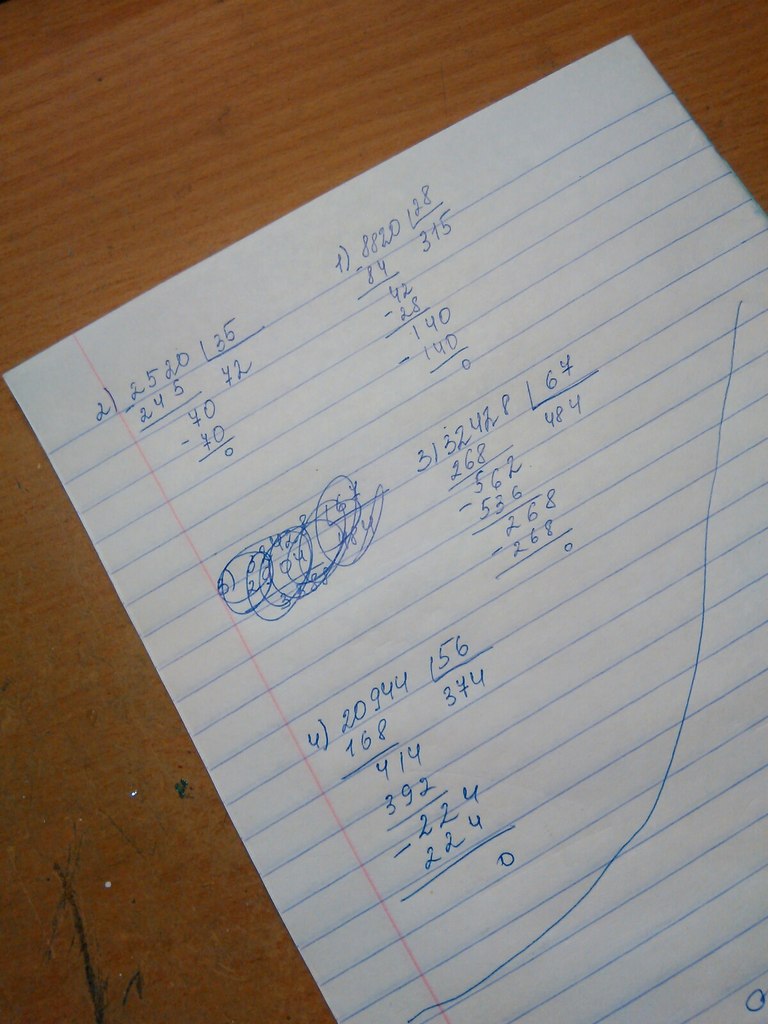 1) 8820 28
- 84 315
- 42
28
140
- 140
0
2) 2520 35
- 245 72
- 70
70
0
3) 32428 67
268 484
- 562
536
- 268
268
0
4) 20944 56
168 374
414
392
- 224
224
0